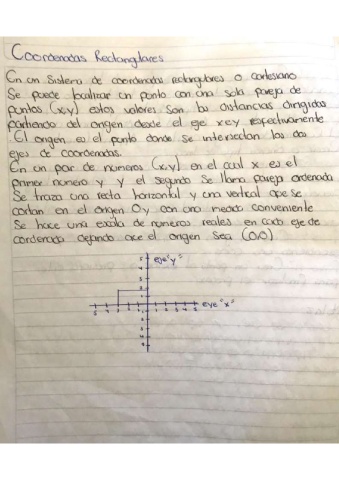 Coordenadas Rectangulares
En un Sistema de coordenadas rectangulares o cartesiano
Se puede localizar un punto con una sola pareja de
puntos (x,y) estos valores son las distancias dirigidas
partiendo del origen desde el eje x e y respectivamente
. El origen es el punto donde se intersectan los dos
ejes de coordenadas.
En un par de numeros (x,y) en el cual x es el
primer numero y y el segundo se llama pareja ordenada
Se traza una recta horizontal y una vertical que se
cortan en el origen O y con una medida conveniente
Se hace una escala de numeros reales en cada eje de
cordenada dejando que el origen sea (0,0)
eje "y"
eye "x"